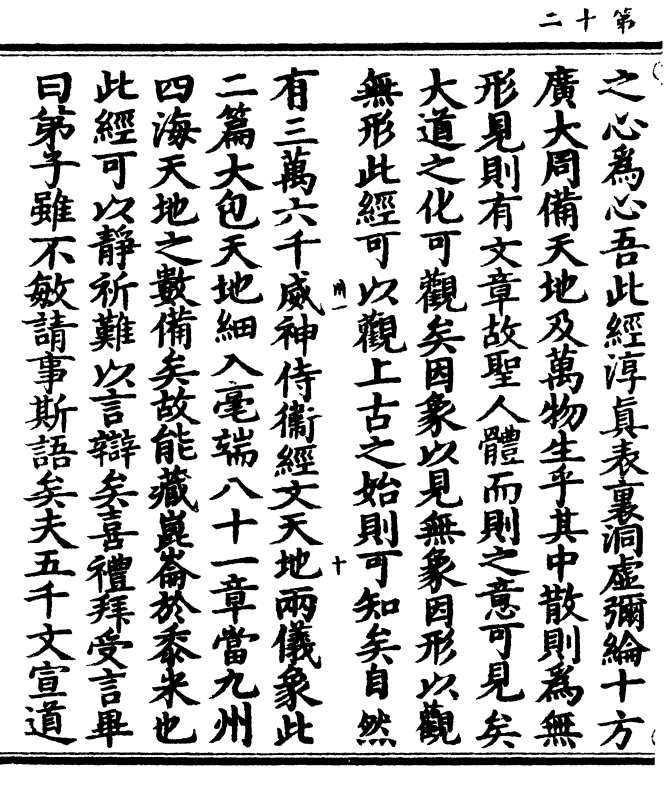 第十二
之心爲心吾此經淳眞表裏洞虛彌綸十方
廣大周備天地及萬物生乎其中散則爲無
形見則有文章故聖人體而則之意可見矣
大道之化可觀矣因象以見無象因形以觀
無形此經可以觀上古之始則可知矣自然
用一
十
有三萬六千威神侍衞經文天地兩儀象此
二篇大包天地細入毫端八十一章當九州
四海天地之數備矣故能藏崑崙於黍米也
此經可以靜祈難以言辯矣喜禮拜受言畢
曰第子雖不敏請事斯語矣夫五千文宣道